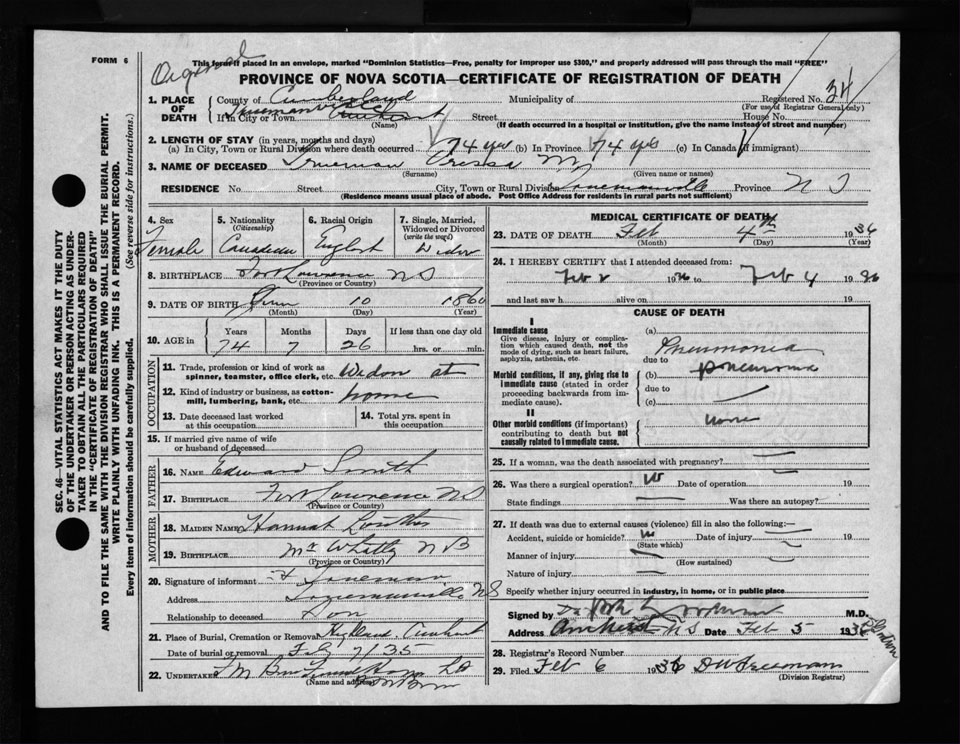 FORM 6
Original
This form if placed in an envelope, marked "Dominion Statistics—Free, penalty for improper use $300," and properly addressed will pass through the mail "FREE"
PROVINCE OF NOVA SCOTIA—CERTIFICATE OF REGISTRATION OF DEATH
SEC. 46—VITAL STATISTICS ACT MAKES IT THE DUTY
OF THE UNDERTAKER OR PERSON ACTING AS UNDER-
TAKER TO OBTAIN ALL THE PARTICULARS REQUIRED
IN THE "CERTIFICATE OF REGISTRATION OF DEATH"
AND TO FILE THE SAME WITH THE DIVISION REGISTRAR WHO SHALL ISSUE THE BURIAL PERMIT.
WRITE PLAINLY WITH UNFADING INK. THIS IS A PERMANENT RECORD.
Every item of information should be carefully supplied. (See reverse side for instructions.)
1. PLACE OF DEATH County of Cumberland Municipality of Registered No. 34
(For use of Registrar General only)
If in City or Town Amherst Street House No.
(Name) (If death occurred in a hospital or institution, give the name instead of street and number)
2. LENGTH OF STAY (in years, months and days)
(a) In City, Town or Rural Division where death occurred 74 yrs (b) In Province 74 yrs (c) In Canada (if immigrant)
3. NAME OF DECEASED Trueman M
(Surname) (Given name or names)
RESIDENCE No. Street City, Town or Rural Division Truemanville Province N S
(Residence means usual place of abode. Post Office Address for residents in rural parts not sufficient)
4. Sex Female
5. Nationality (Citizenship) Canadian
6. Racial Origin English
7. Single, Married, Widowed or Divorced (write the word) Widow
8. BIRTHPLACE Fort Lawrence NS
(Province or Country)
9. DATE OF BIRTH 10 1860
(Month) (Day) (Year)
10. AGE in Years Months Days If less than one day old
74 7 26 hrs. or min.
OCCUPATION
11. Trade, profession or kind of work as spinner, teamster, office clerk, etc. Widow at
12. Kind of industry or business, as cotton-mill, lumbering, bank, etc. home
13. Date deceased last worked at this occupation
14. Total yrs. spent in this occupation
15. If married give name of wife or husband of deceased
FATHER
16. NAME Edward Smith
17. BIRTHPLACE Fort Lawrence NS
(Province or Country)
MOTHER
18. MAIDEN NAME Hannah Lowther
19. BIRTHPLACE Mt Whatley NB
(Province or Country)
20. Signature of informant Trueman
Address Truemanville NS
Relationship to deceased Son
21. Place of Burial, Cremation or Removal Highland Amherst
Date of burial or removal Feb 7/35
22. UNDERTAKER
(Name and address)
MEDICAL CERTIFICATE OF DEATH
23. DATE OF DEATH Feb 4th 1936
(Month) (Day) (Year)
24. I HEREBY CERTIFY that I attended deceased from:
Feb 2 1936 to Feb 4 1936
and last saw h alive on 19
CAUSE OF DEATH
I
Immediate cause
Give disease, injury or complication which caused death, not the mode of dying, such as heart failure, asphyxia, asthenia, etc.
(a) Pneumonia
due to
Morbid conditions, if any, giving rise to immediate cause (stated in order proceeding backwards from immediate cause).
(b) pneumonia
due to
(c)
II
Other morbid conditions (if important) contributing to death but not causally related to immediate cause.
none
25. If a woman, was the death associated with pregnancy?
26. Was there a surgical operation? Date of operation 19
State findings Was there an autopsy?
27. If death was due to external causes (violence) fill in also the following:—
Accident, suicide or homicide? Date of injury 19
(State which)
Manner of injury
(How sustained)
Nature of injury
Specify whether injury occurred in industry, in home, or in public place
Signed by Dr M.D.
Address Amherst NS Date Feb 5 1936
28. Registrar's Record Number
29. Filed Feb 6 1936 D W Freeman
(Division Registrar)